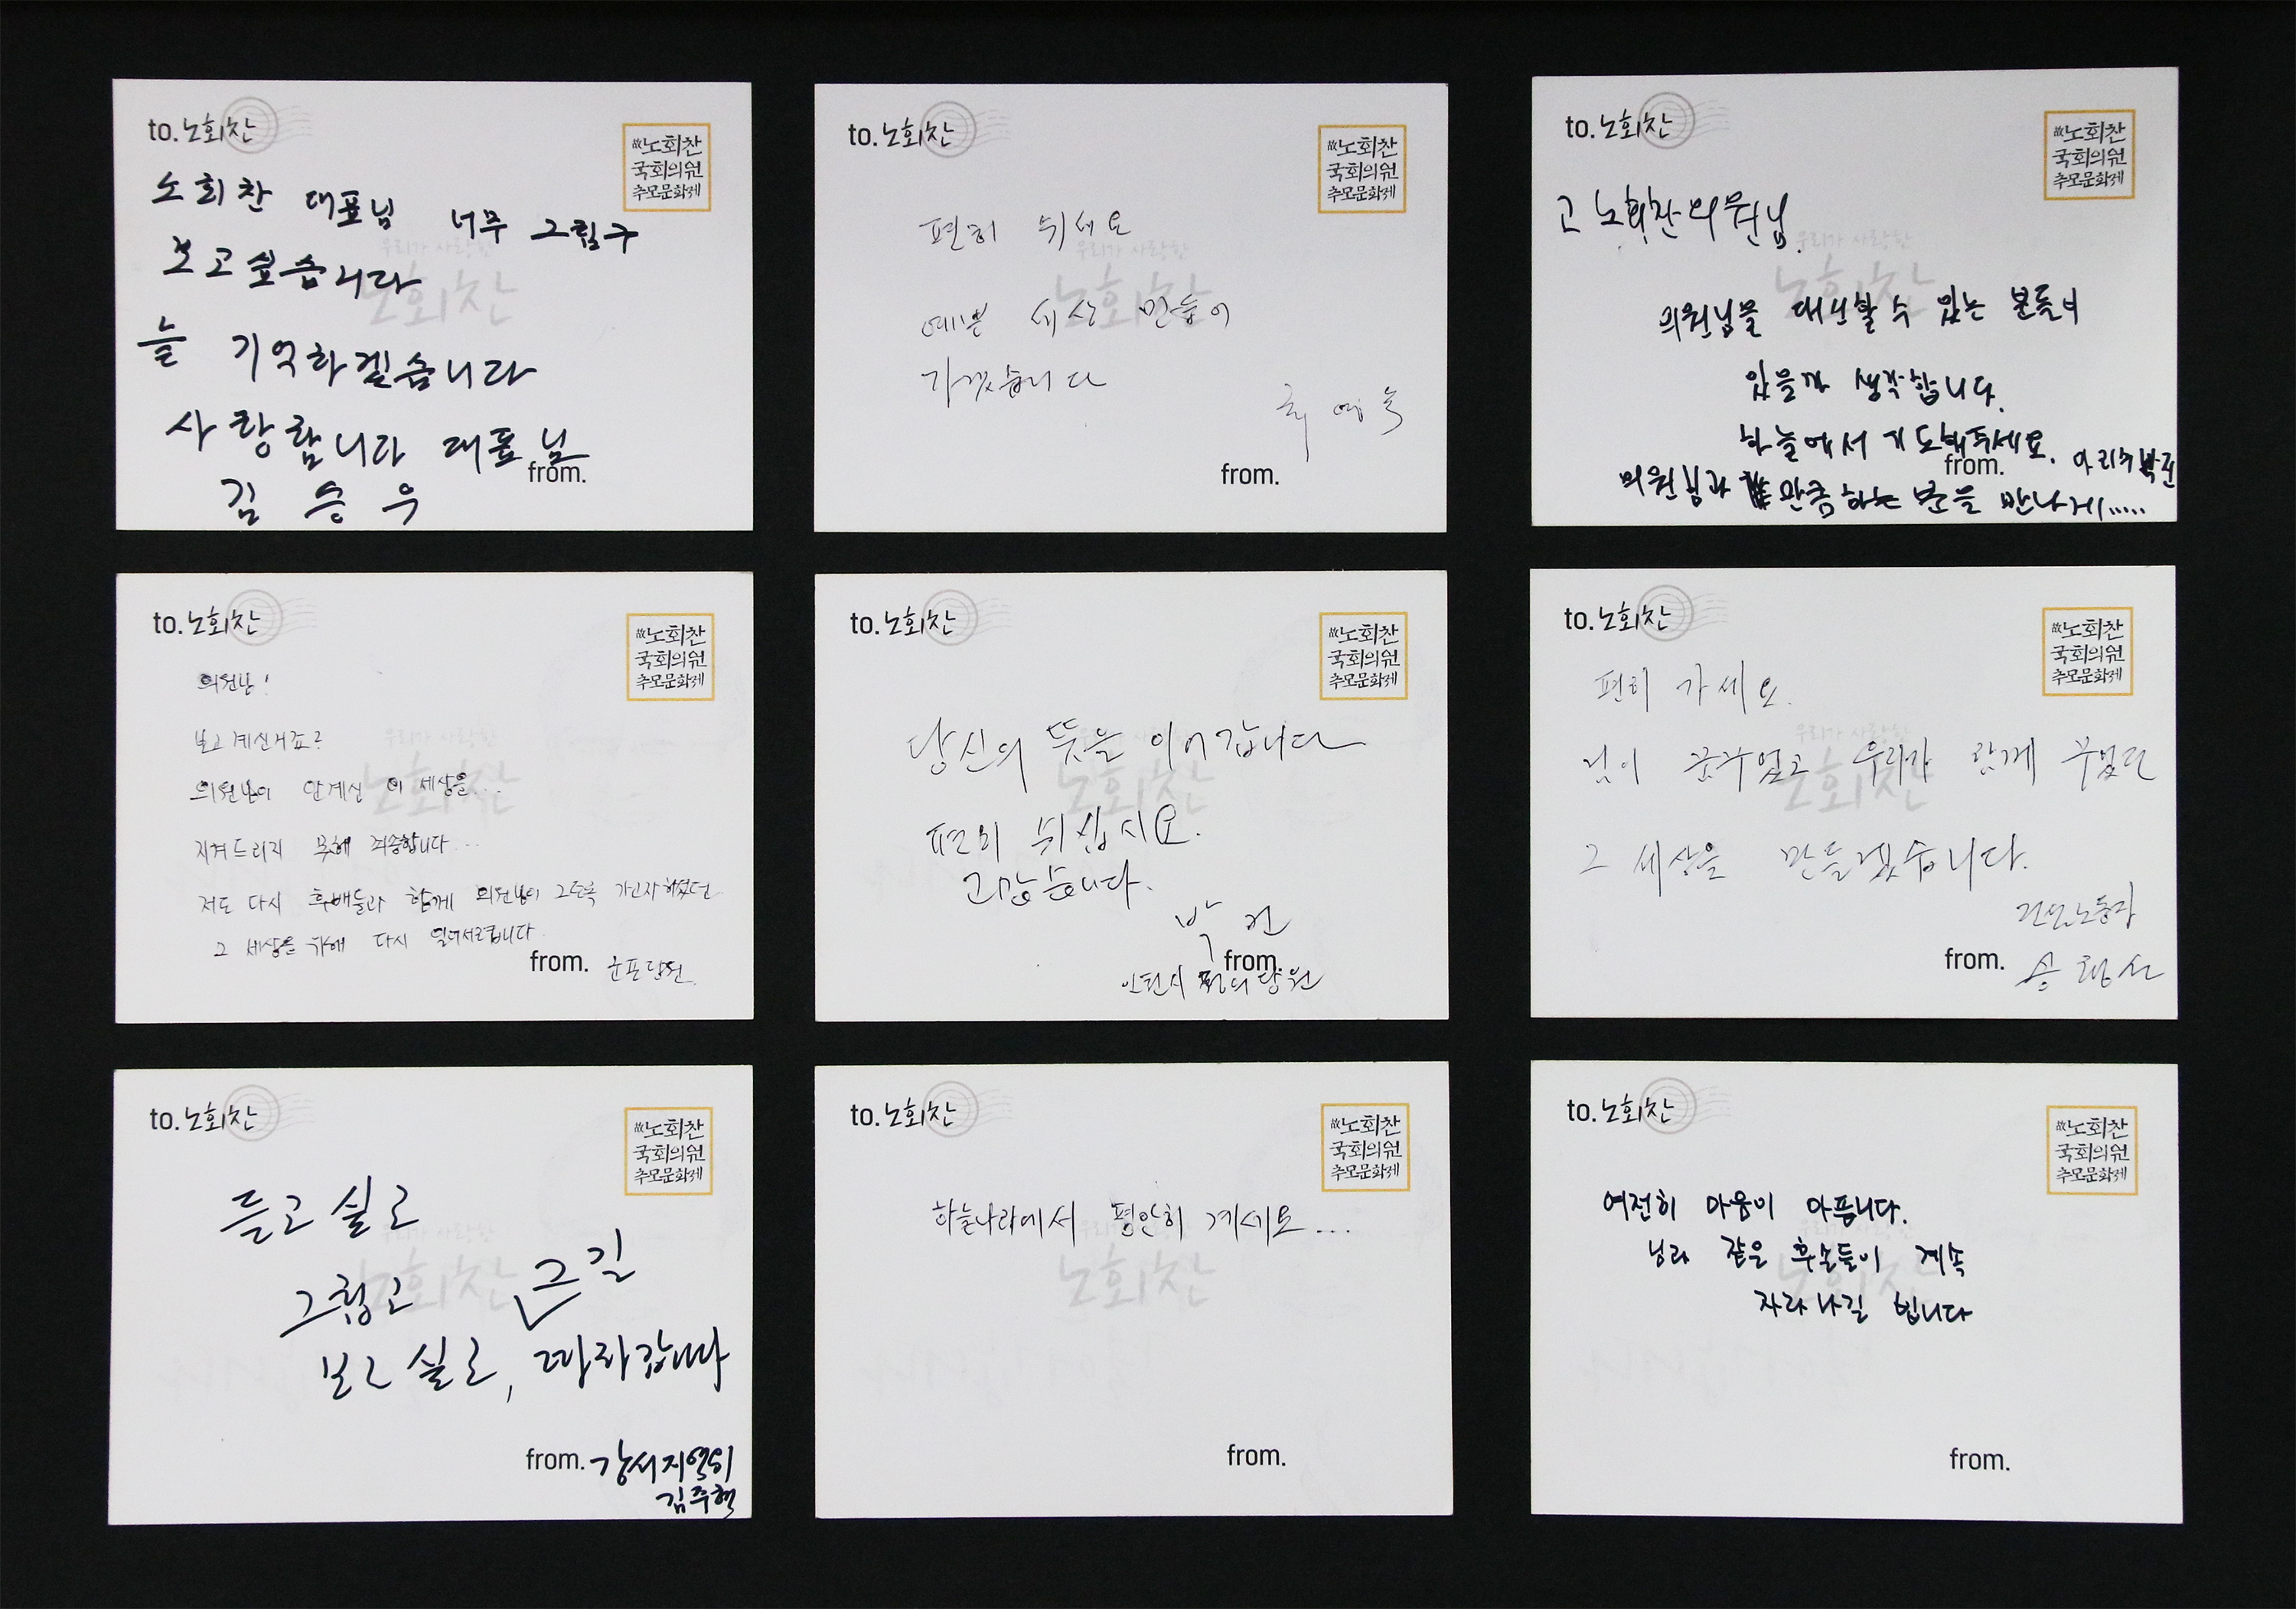 to. 노회찬
故노회찬
국회의원
추모문화제
노회찬 대표님 너무 그립구
보고싶습니다
늘 기억하겠습니다
사랑합니다 대표님
from.
김승우
우리가 사랑한
노회찬
to. 노회찬
故노회찬
국회의원
추모문화제
편히 쉬세요
예쁜 세상 만들어
가겠습니다
from.
우리가 사랑한
노회찬
to. 노회찬
故노회찬
국회의원
추모문화제
고 노회찬의원님.
의원님을 대신할 수 있는 분들이
있을까 생각합니다.
하늘에서 기도해주세요.
from.
의원님과 만큼하는 분을 만나게.....
우리가 사랑한
노회찬
to. 노회찬
故노회찬
국회의원
추모문화제
의원님!
보고 계신거죠?
의원님이 안계신 이 세상을...
지켜드리지 못해 죄송합니다...
저도 다시 후배들과 함께 의원님이 그토록 가고자 하셨던
그 세상을 위해 다시 일어서렵니다
from. 군포당원
우리가 사랑한
노회찬
to. 노회찬
故노회찬
국회의원
추모문화제
당신의 뜻을 이어갑니다
편히 쉬십시요.
고맙습니다.
박건
from.
정의당원
노회찬
to. 노회찬
故노회찬
국회의원
추모문화제
편히 가세요.
님이 꿈꾸었고 우리가 함께 꾸었던
그 세상을 만들겠습니다.
건설노동자
from. 송
우리가 사랑한
노회찬
to. 노회찬
故노회찬
국회의원
추모문화제
듣고 싶고
그립고
보고 싶고, 그 길 따라갑니다
from. 강서지역위
김주혁
우리가 사랑한
노회찬
to. 노회찬
故노회찬
국회의원
추모문화제
하늘나라에서 평안히 계세요...
from.
우리가 사랑한
노회찬
to. 노회찬
故노회찬
국회의원
추모문화제
여전히 마음이 아픕니다.
님과 같은 후손들이 계속
자라나길 빕니다
from.
우리가 사랑한
노회찬